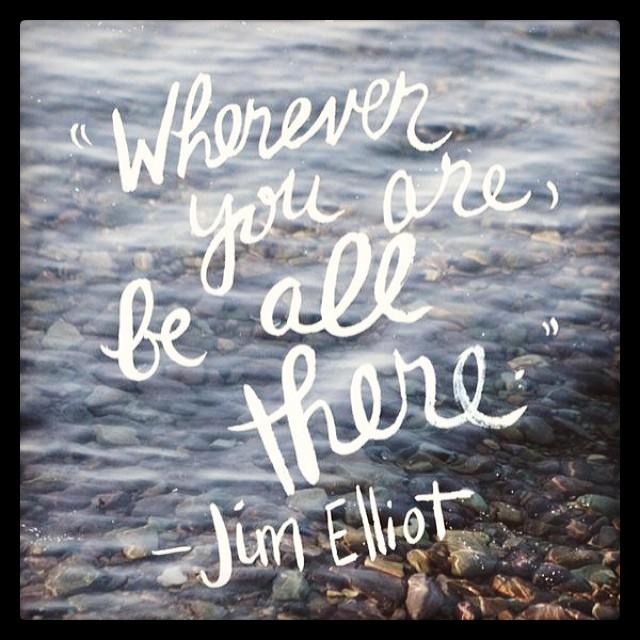 "Wherever
you are,
be all
there."
—Jim Elliot